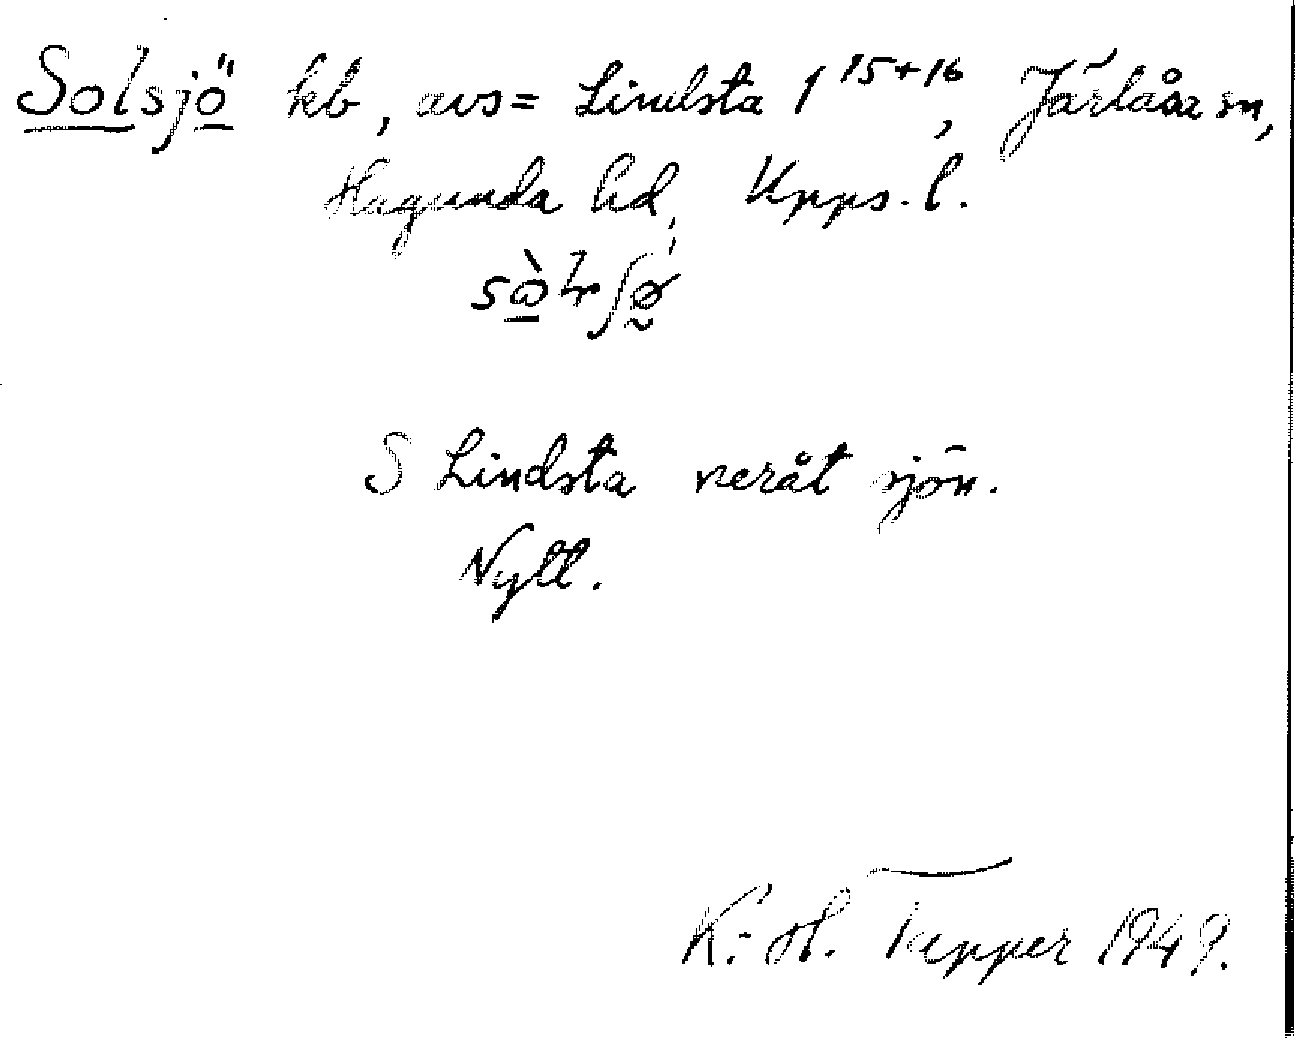 Solsjö kb, avs= Lindsta 1 15+16, Järlåsa sn,
Hagunda hd, Upps. l.
S Lindsta neråt sjön.
Nytt.
K.-H. Tapper 1949.